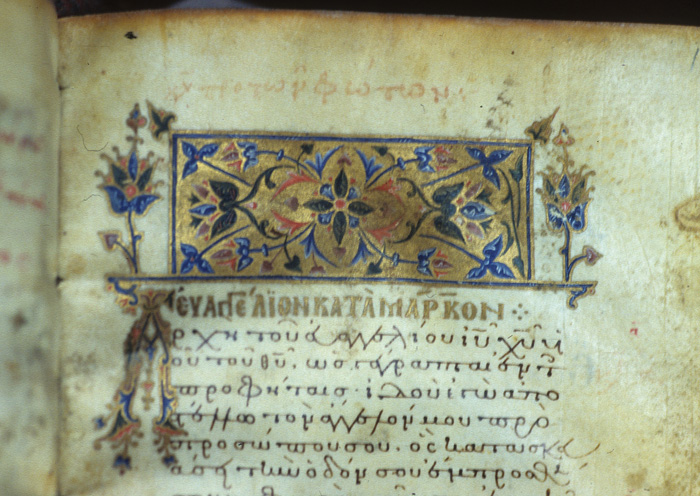 πρὸ τῶν φώτων
ΕΥΑΓΓΕΛΙΟΝ ΚΑΤᾺ ΜΑΡΚΟΝ
Ἀρχὴ τοῦ εὐαγγελίου ἰῦ χῦ υἱ
οῦ τοῦ θῦ, ὡς γέγραπται ἐν τ
προφήταις· ἰδοὺ ἐγὼ ἀπο
στέλλω τὸν ἄγγελόν μου πρὸ
προσώπου σου, ὃς κατασκευ
άσει τὴν ὁδόν σου ἔμπροσθέ